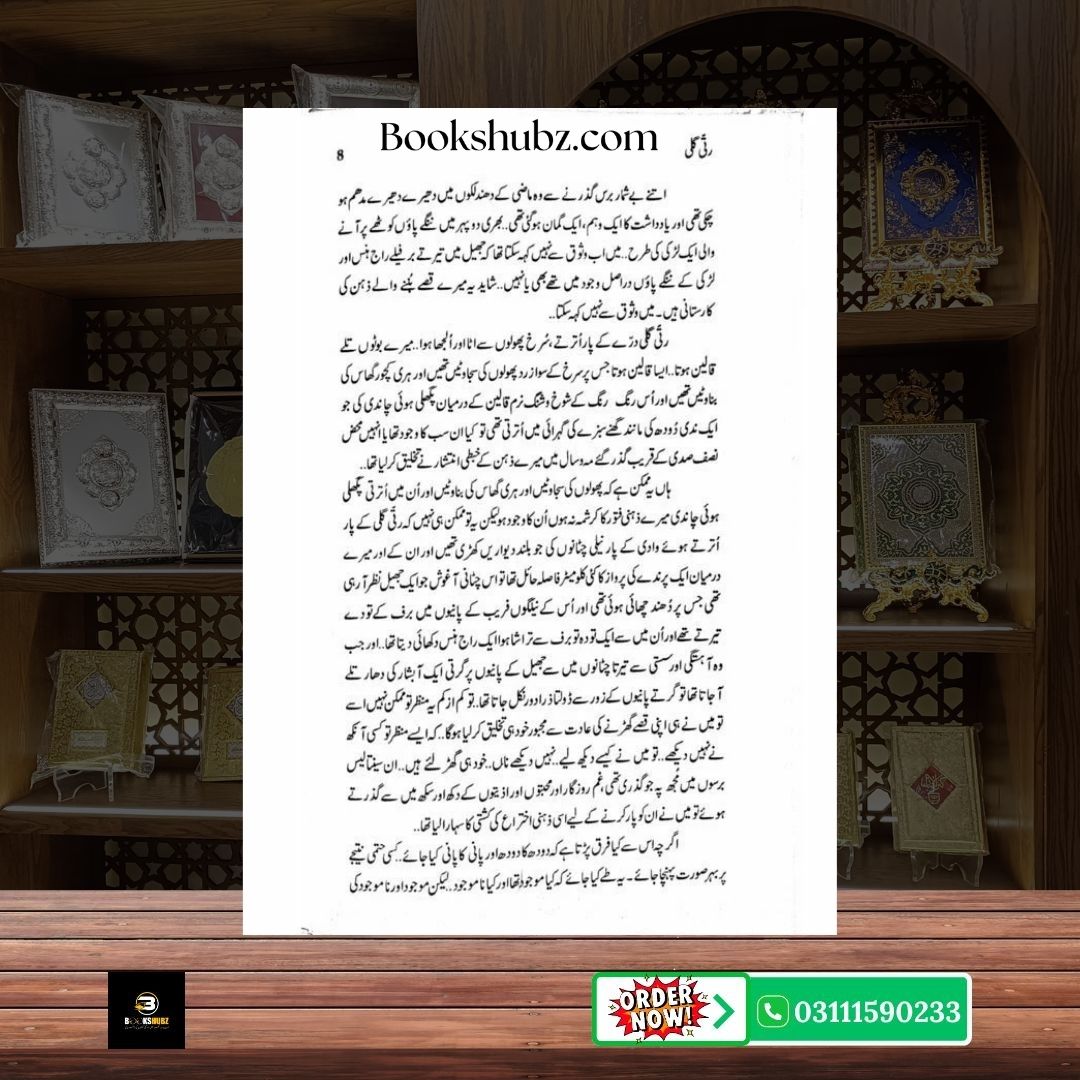 Bookshubz.com
رتّی گلی
8
اتنے بے شمار برس گذرنے سے وہ ماضی کے دھندلکوں میں دھیرے دھیرے مدھم ہو
چکی تھی اور یادداشت کا ایک وہم، ایک گمان ہو گئی تھی.. بھری دوپہر میں ننگے پاؤں کوٹھے پر آنے
والی ایک لڑکی کی طرح.. میں اب وثوق سے نہیں کہہ سکتا تھا کہ جھیل میں تیرتے برفیلے راج ہنس اور
لڑکی کے ننگے پاؤں دراصل وجود میں تھے بھی یا نہیں.. شاید یہ میرے قصے بُننے والے ذہن کی
کارستانی ہیں۔ میں وثوق سے نہیں کہہ سکتا..
رتّی گلی درّے کے پار اُترتے، سُرخ پھولوں سے اٹا اور اُلجھا ہوا.. میرے بوٹوں تلے
قالین ہوتا.. ایسا قالین ہوتا جس پر سرخ کے سوا زرد پھولوں کی سجاوٹیں تھیں اور ہری کچور گھاس کی
بناوٹیں تھیں اور اُس رنگ رنگ کے شوخ و شنگ نرم قالین کے درمیان پگھلی ہوئی چاندی کی جو
ایک ندی دُودھ کی مانند گھنے سبزے کی گہرائی میں اُترتی تھی تو کیا ان سب کا وجود تھا یا انہیں محض
نصف صدی کے قریب گذر گئے مہ و سال میں میرے ذہن کے خبطی انتشار نے تخلیق کر لیا تھا..
ہاں یہ ممکن ہے کہ پھولوں کی سجاوٹیں اور ہری گھاس کی بناوٹیں اور اُن میں اُترتی پگھلی
ہوئی چاندی میرے ذہنی فتور کا کرشمہ نہ ہوں اُن کا وجود ہو لیکن یہ تو ممکن ہی نہیں کہ رتّی گلی کے پار
اُترتے ہوئے وادی کے پار نیلی چٹانوں کی جو بلند دیواریں کھڑی تھیں اور ان کے اور میرے
درمیان ایک پرندے کی پرواز کا کئی کلومیٹر فاصلہ حائل تھا تو اس چٹانی آغوش جو ایک جھیل نظر آ رہی
تھی جس پر دُھند چھائی ہوئی تھی اور اُس کے نیلگوں فریب کے پانیوں میں برف کے تودے
تیرتے تھے اور اُن میں سے ایک تودہ تو برف سے تراشا ہوا ایک راج ہنس دکھائی دیتا تھا.. اور جب
وہ آہستگی اور سستی سے تیرتا چٹانوں میں سے جھیل کے پانیوں پر گرتی ایک آبشار کی دھار تلے
آ جاتا تھا تو گرتے پانیوں کے زور سے ڈولتا ذرا دور نکل جاتا تھا.. تو کم از کم یہ منظر تو ممکن نہیں اسے
تو میں نے ہی اپنی قصے گھڑنے کی عادت سے مجبور خود ہی تخلیق کر لیا ہوگا.. کہ ایسے منظر تو کسی آنکھ
نے نہیں دیکھے.. تو میں نے کیسے دیکھ لیے.. نہیں دیکھے ناں.. خود ہی گھڑ لئے ہیں.. ان سینتالیس
برسوں میں مجھ پہ جو گذری تھی، غم روزگار اور محبتوں اور اذیتوں کے دکھ اور سکھ میں سے گذرتے
ہوئے تو میں نے ان کو پار کرنے کے لیے اسی ذہنی اختراع کی کشتی کا سہارا لیا تھا..
اگرچہ اس سے کیا فرق پڑتا ہے کہ دودھ کا دودھ اور پانی کا پانی کیا جائے.. کسی حتمی نتیجے
پر بہر صورت پہنچا جائے۔ یہ طے کیا جائے کہ کیا موجود تھا اور کیا نا موجود.. لیکن موجود اور ناموجود کی
BOOKSHUBZ
ORDER
NOW!
03111590233